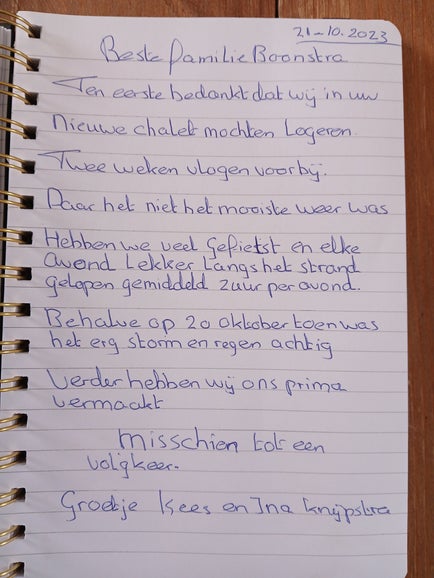 21-10.2023
Beste familie Boonstra
Ten eerste bedankt dat wij in uw
nieuwe chalet mochten Logeren.
Twee weken vlogen voorbij.
Daar het niet het mooiste weer was
Hebben we veel gefietst en elke
avond Lekker Langs het strand
gelopen gemiddeld 2 uur per avond.
Behalve op 20 oktober toen was
het erg storm en regen achtig
Verder hebben wij ons prima
vermaakt
misschien tot een
volgkeer.
Groetje Kees en Ina Knijpstra